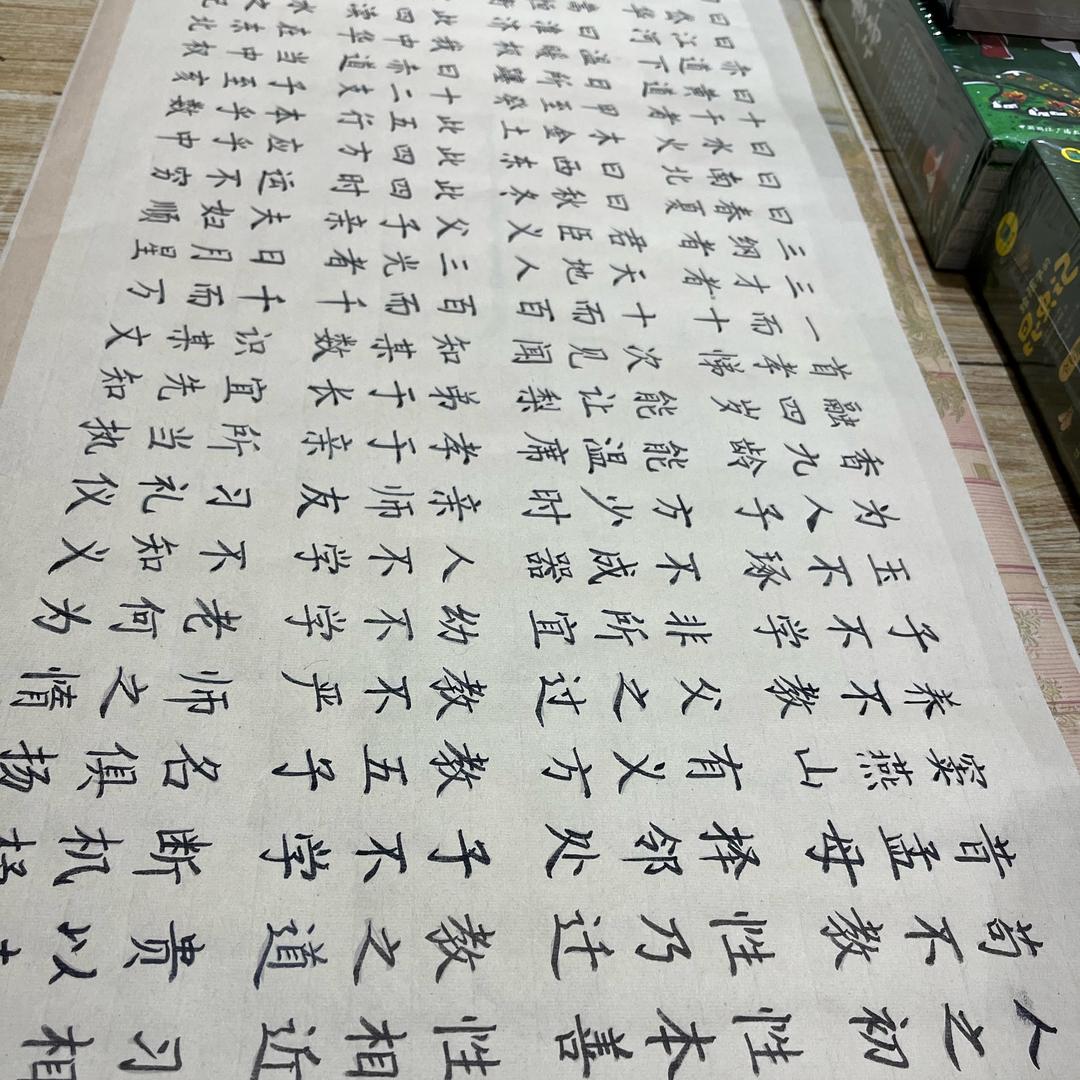 人之初 性本善 性相近 习相
苟不教 性乃迁 教之道 贵以
昔孟母 择邻处 子不学 断机杼
窦燕山 有义方 教五子 名俱扬
养不教 父之过 教不严 师之惰
子不学 非所宜 幼不学 老何为
玉不琢 不成器 人不学 不知义
为人子 方少时 亲师友 习礼仪
香九龄 能温席 孝于亲 所当执
融四岁 能让梨 弟于长 宜先知
首孝悌 次见闻 知某数 识某文
一而十 十而百 百而千 千而万
三才者 天地人 三光者 日月星
三纲者 君臣义 父子亲 夫妇顺
曰春夏 曰秋冬 此四时 运不穷
曰南北 曰西东 此四方 应乎中
曰水火 木金土 此五行 本乎数
十干者 甲至癸 十二支 子至亥
曰黄道 日所躔 曰赤道 当中权
赤道下 温暖极 我中华 在东北
曰江河 曰淮济 此四渎 水之纪